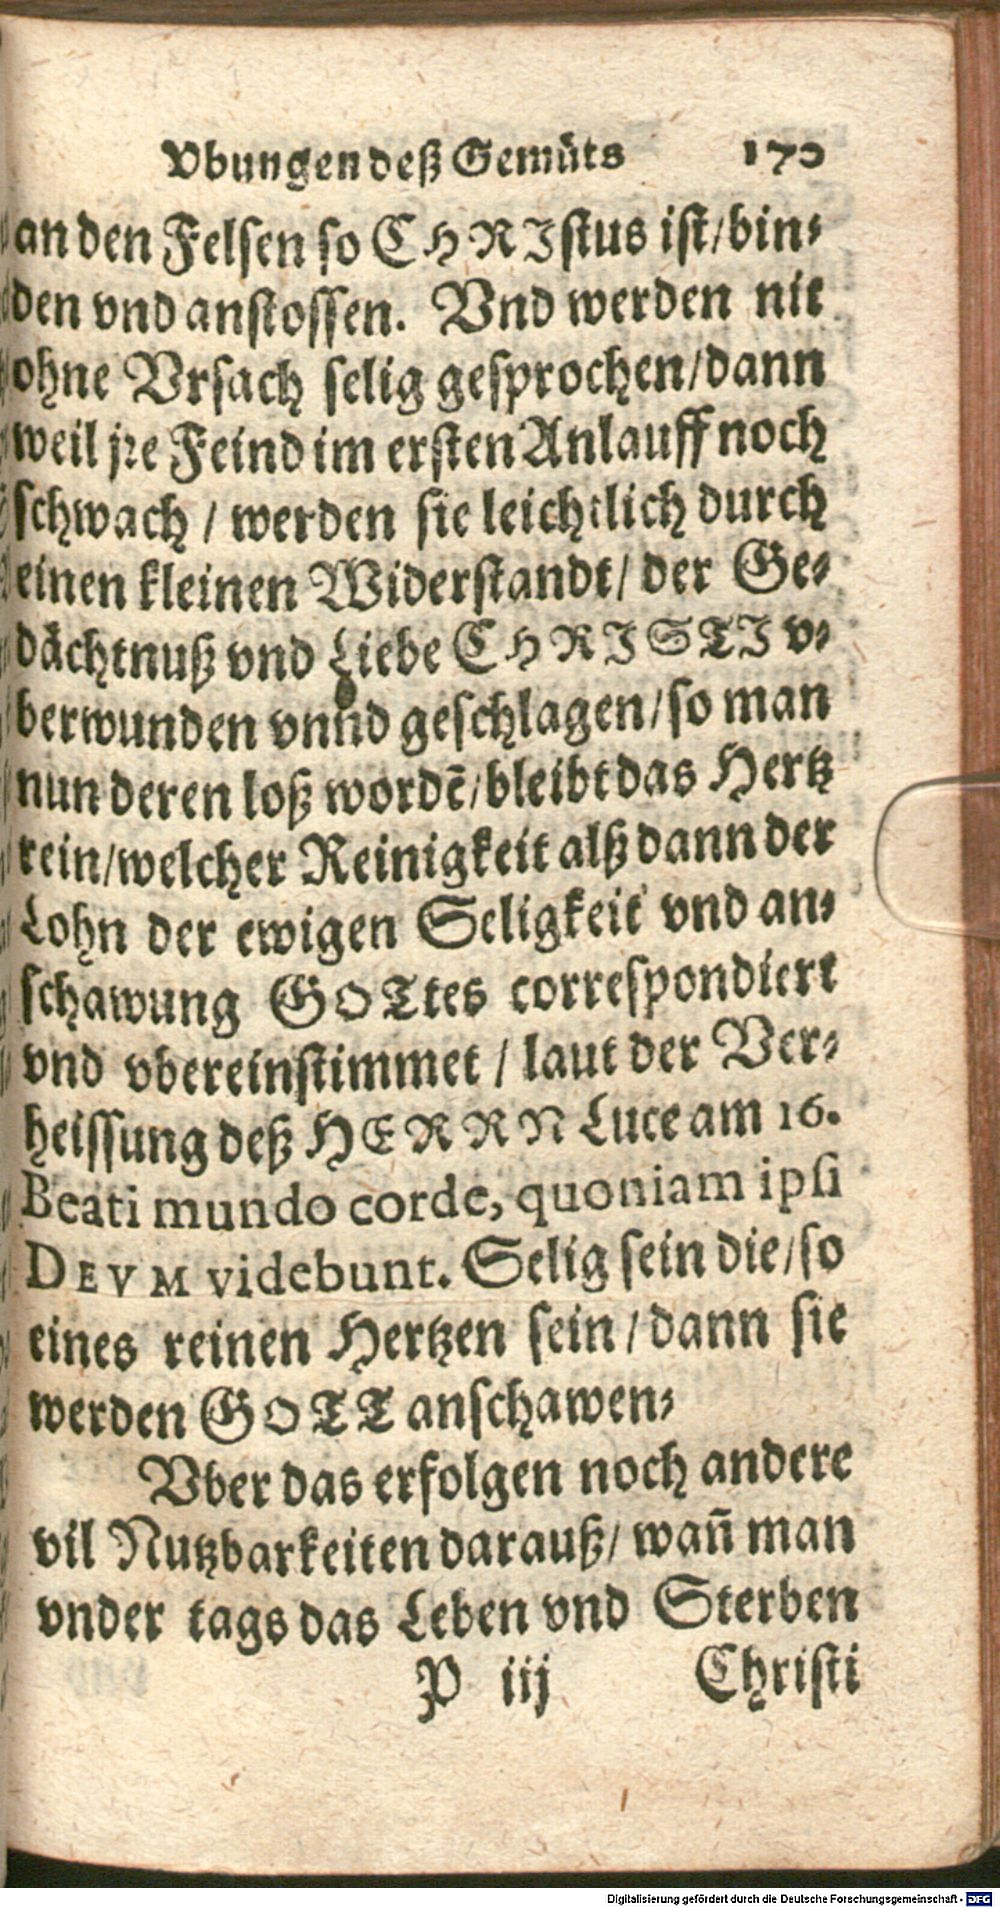 Vbungen deß Gemüts 170
an den Felsen so CHRIstus ist/bin⸗
den vnd anstossen. Vnd werden nit
ohne Vrsach selig gesprochen/dann
weil jre Feind im ersten Anlauff noch
schwach / werden sie leichtlich durch
einen kleinen Widerstandt/ der Ge⸗
dächtnuß vnd Liebe CHRISTI v⸗
berwunden vnnd geschlagen/so man
nun deren loß wordẽ/bleibt das Hertz
rein/welcher Reinigkeit alß dann der
Lohn der ewigen Seligkeit vnd an⸗
schawung GOTtes correspondiert
vnd vbereinstimmet / laut der Ver⸗
heissung deß HERRN Luce am 16.
Beati mundo corde, quoniam ipsi
DEVM videbunt. Selig sein die/so
eines reinen Hertzen sein/dann sie
werden GOTT anschawen⸗
Vber das erfolgen noch andere
vil Nutzbarkeiten darauß/ wañ man
vnder tags das Leben vnd Sterben
P iij Christi
Digitalisierung gefördert durch die Deutsche Forschungsgemeinschaft - DFG